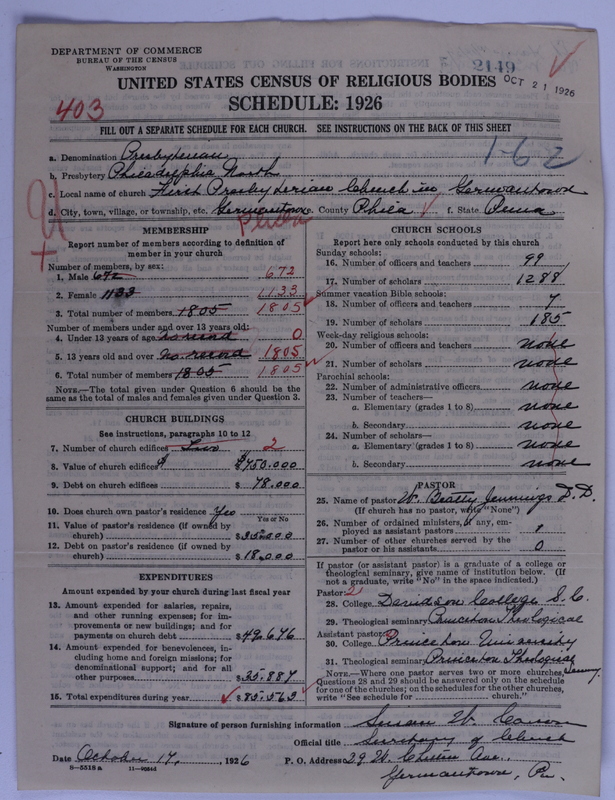 DEPARTMENT OF COMMERCE
BUREAU OF THE CENSUS
WASHINGTON
2149
OCT 21 1926
UNITED STATES CENSUS OF RELIGIOUS BODIES
403
SCHEDULE: 1926
FILL OUT A SEPARATE SCHEDULE FOR EACH CHURCH. SEE INSTRUCTIONS ON THE BACK OF THIS SHEET
1-62
a. Denomination Presbyterian
b. Presbytery Philadelphia North
c. Local name of church First Presbyterian Church in Germantown
d. City, town, village, or township, etc. Germantown e. County Phila f. State Penna
MEMBERSHIP
Report number of members according to definition of member in your church
Number of members, by sex:
1. Male 672 672
2. Female 1133 1133
3. Total number of members 1805 1805
Number of members under and over 13 years old:
4. Under 13 years of age no record 0
5. 13 years old and over no record 1805
6. Total number of members 1805 1805
NOTE.—The total given under Question 6 should be the same as the total of males and females given under Question 3.
CHURCH BUILDINGS
See instructions, paragraphs 10 to 12
7. Number of church edifices Two 2
8. Value of church edifices $ $750.000
9. Debt on church edifices 78.000
10. Does church own pastor's residence? Yes
Yes or No
11. Value of pastor's residence (if owned by church) $35.000
12. Debt on pastor's residence (if owned by church) $18.000
EXPENDITURES
Amount expended by your church during last fiscal year
13. Amount expended for salaries, repairs, and other running expenses; for improvements or new buildings; and for payments on church debt $49.676
14. Amount expended for benevolences, including home and foreign missions; for denominational support; and for all other purposes $35.887
15. Total expenditures during year $85.563
CHURCH SCHOOLS
Report here only schools conducted by this church
Sunday schools:
16. Number of officers and teachers 99
17. Number of scholars 1288
Summer vacation Bible schools:
18. Number of officers and teachers 7
19. Number of scholars 185
Week-day religious schools:
20. Number of officers and teachers none
21. Number of scholars none
Parochial schools:
22. Number of administrative officers none
23. Number of teachers—
a. Elementary (grades 1 to 8) none
b. Secondary none
24. Number of scholars—
a. Elementary (grades 1 to 8) none
b. Secondary none
PASTOR
25. Name of pastor W. Beatty Jennings D.D.
(If church has no pastor, write "None")
26. Number of ordained ministers, if any, employed as assistant pastors 1
27. Number of other churches served by the pastor or his assistants 0
If pastor (or assistant pastor) is a graduate of a college or theological seminary, give name of institution below. (If not a graduate, write "No" in the space indicated.)
Pastor:
28. College Davidson College S.C.
29. Theological seminary Princeton Theological
Assistant pastor:
30. College Princeton University
31. Theological seminary Princeton Theological Semy.
NOTE.—Where one pastor serves two or more churches, Questions 28 and 29 should be answered only on the schedule for one of the churches; on the schedules for the other churches, write "See schedule for church."
Signature of person furnishing information Susan W.
Official title Secretary of Church
Date October 17, 1926 P. O. Address 29 W. Chelten Ave.,
8—5518a 11—9084d Germantown, Pa.